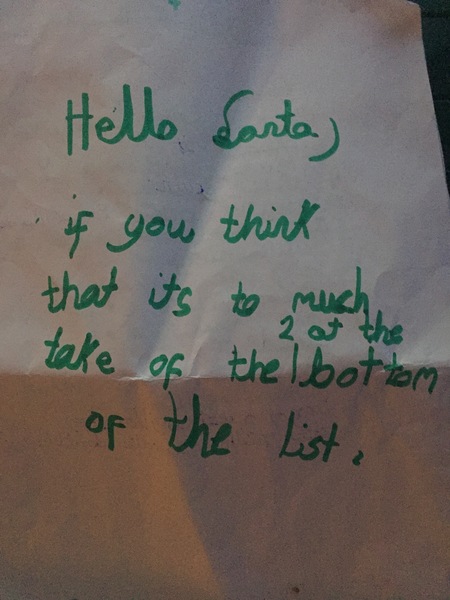 Hello Santa,
if you think
that its to much
2 at the
take of the bottom
of the list.